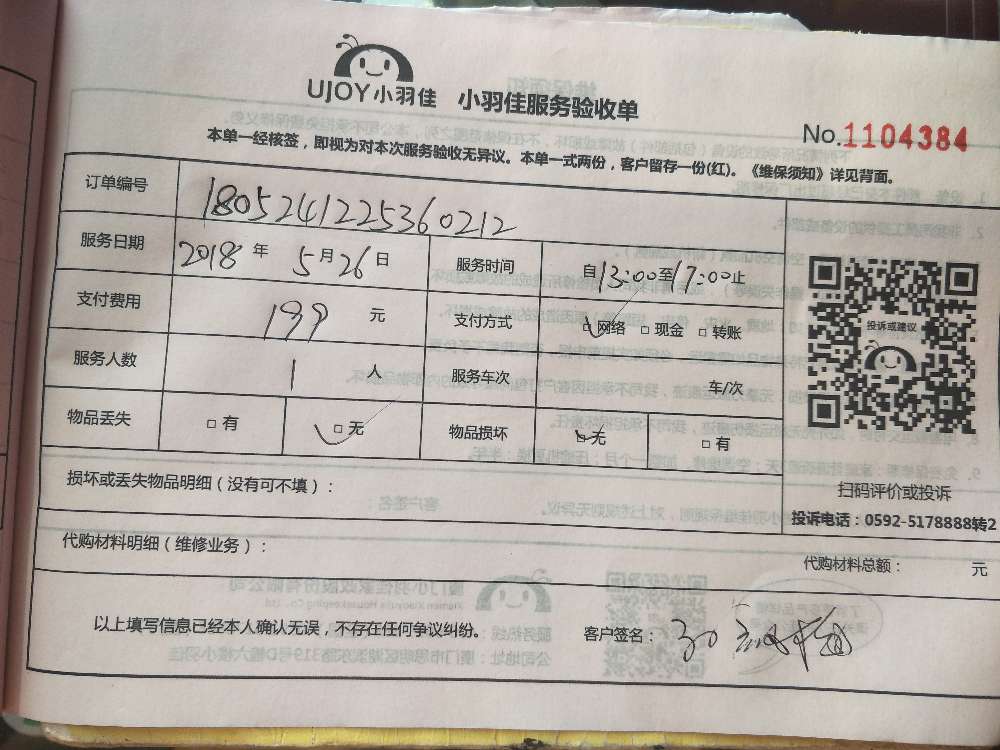 UJOY小羽佳 小羽佳服务验收单
No.1104384
本单一经核签，即视为对本次服务验收无异议。本单一式两份，客户留存一份(红)。《维保须知》详见背面。
订单编号 1805241225360212
服务日期 2018年5月26日 服务时间 自13:00至17:00止
支付费用 199元 支付方式 □网络 □现金 □转账
服务人数 1人 服务车次 车/次
物品丢失 □有 □无 物品损坏 □无 □有
投诉或建议
扫码评价或投诉
投诉电话：0592-5178888转2
损坏或丢失物品明细（没有可不填）：
代购材料明细（维修业务）：
代购材料总额： 元
以上填写信息已经本人确认无误，不存在任何争议纠纷。 客户签名：